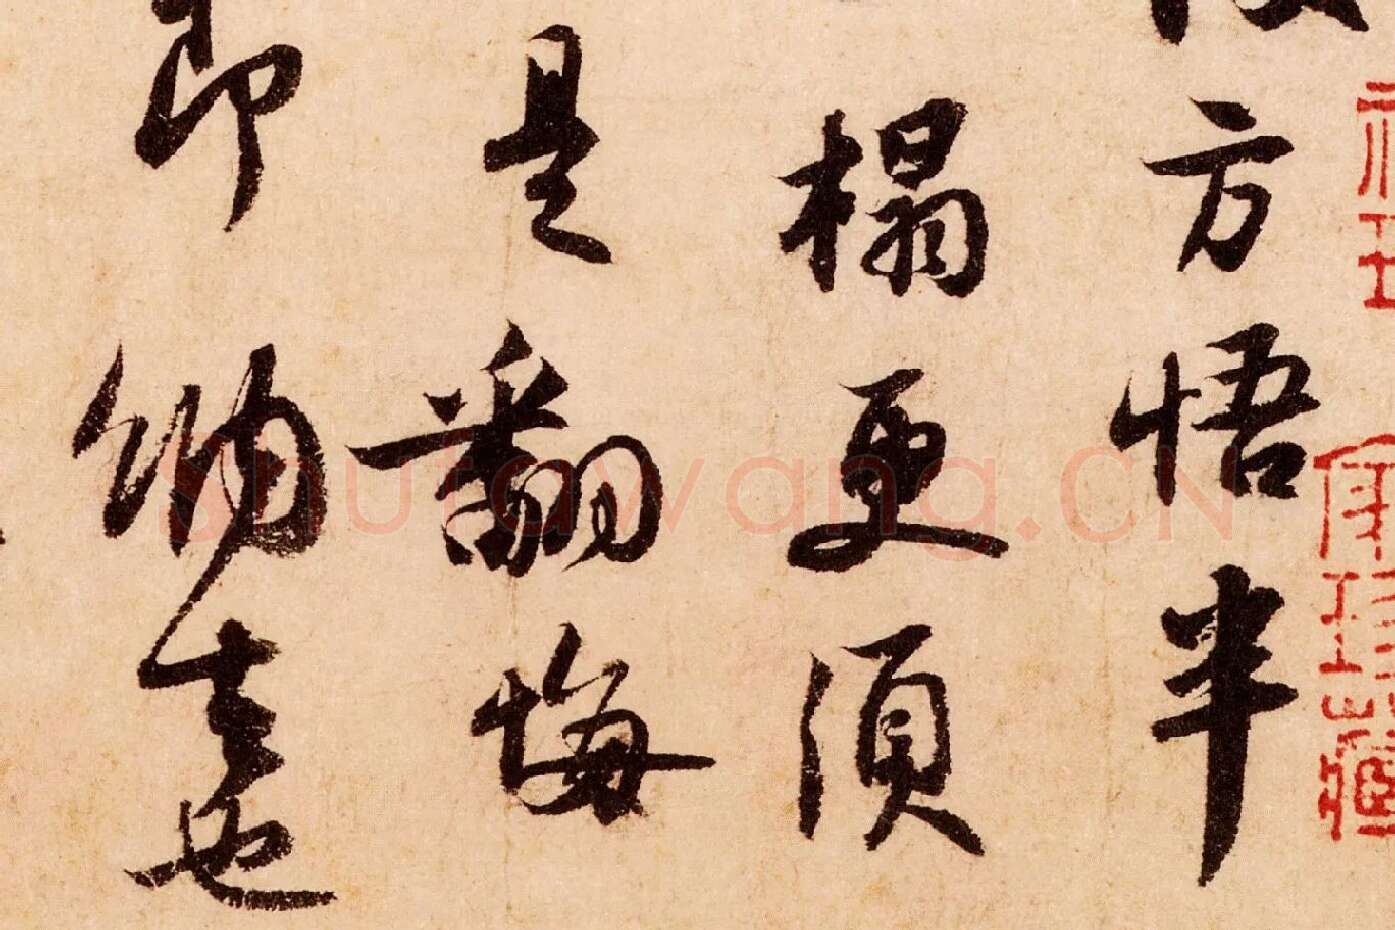 方悟半
榻更須
是翻悔
即納去也
shufawang.CN